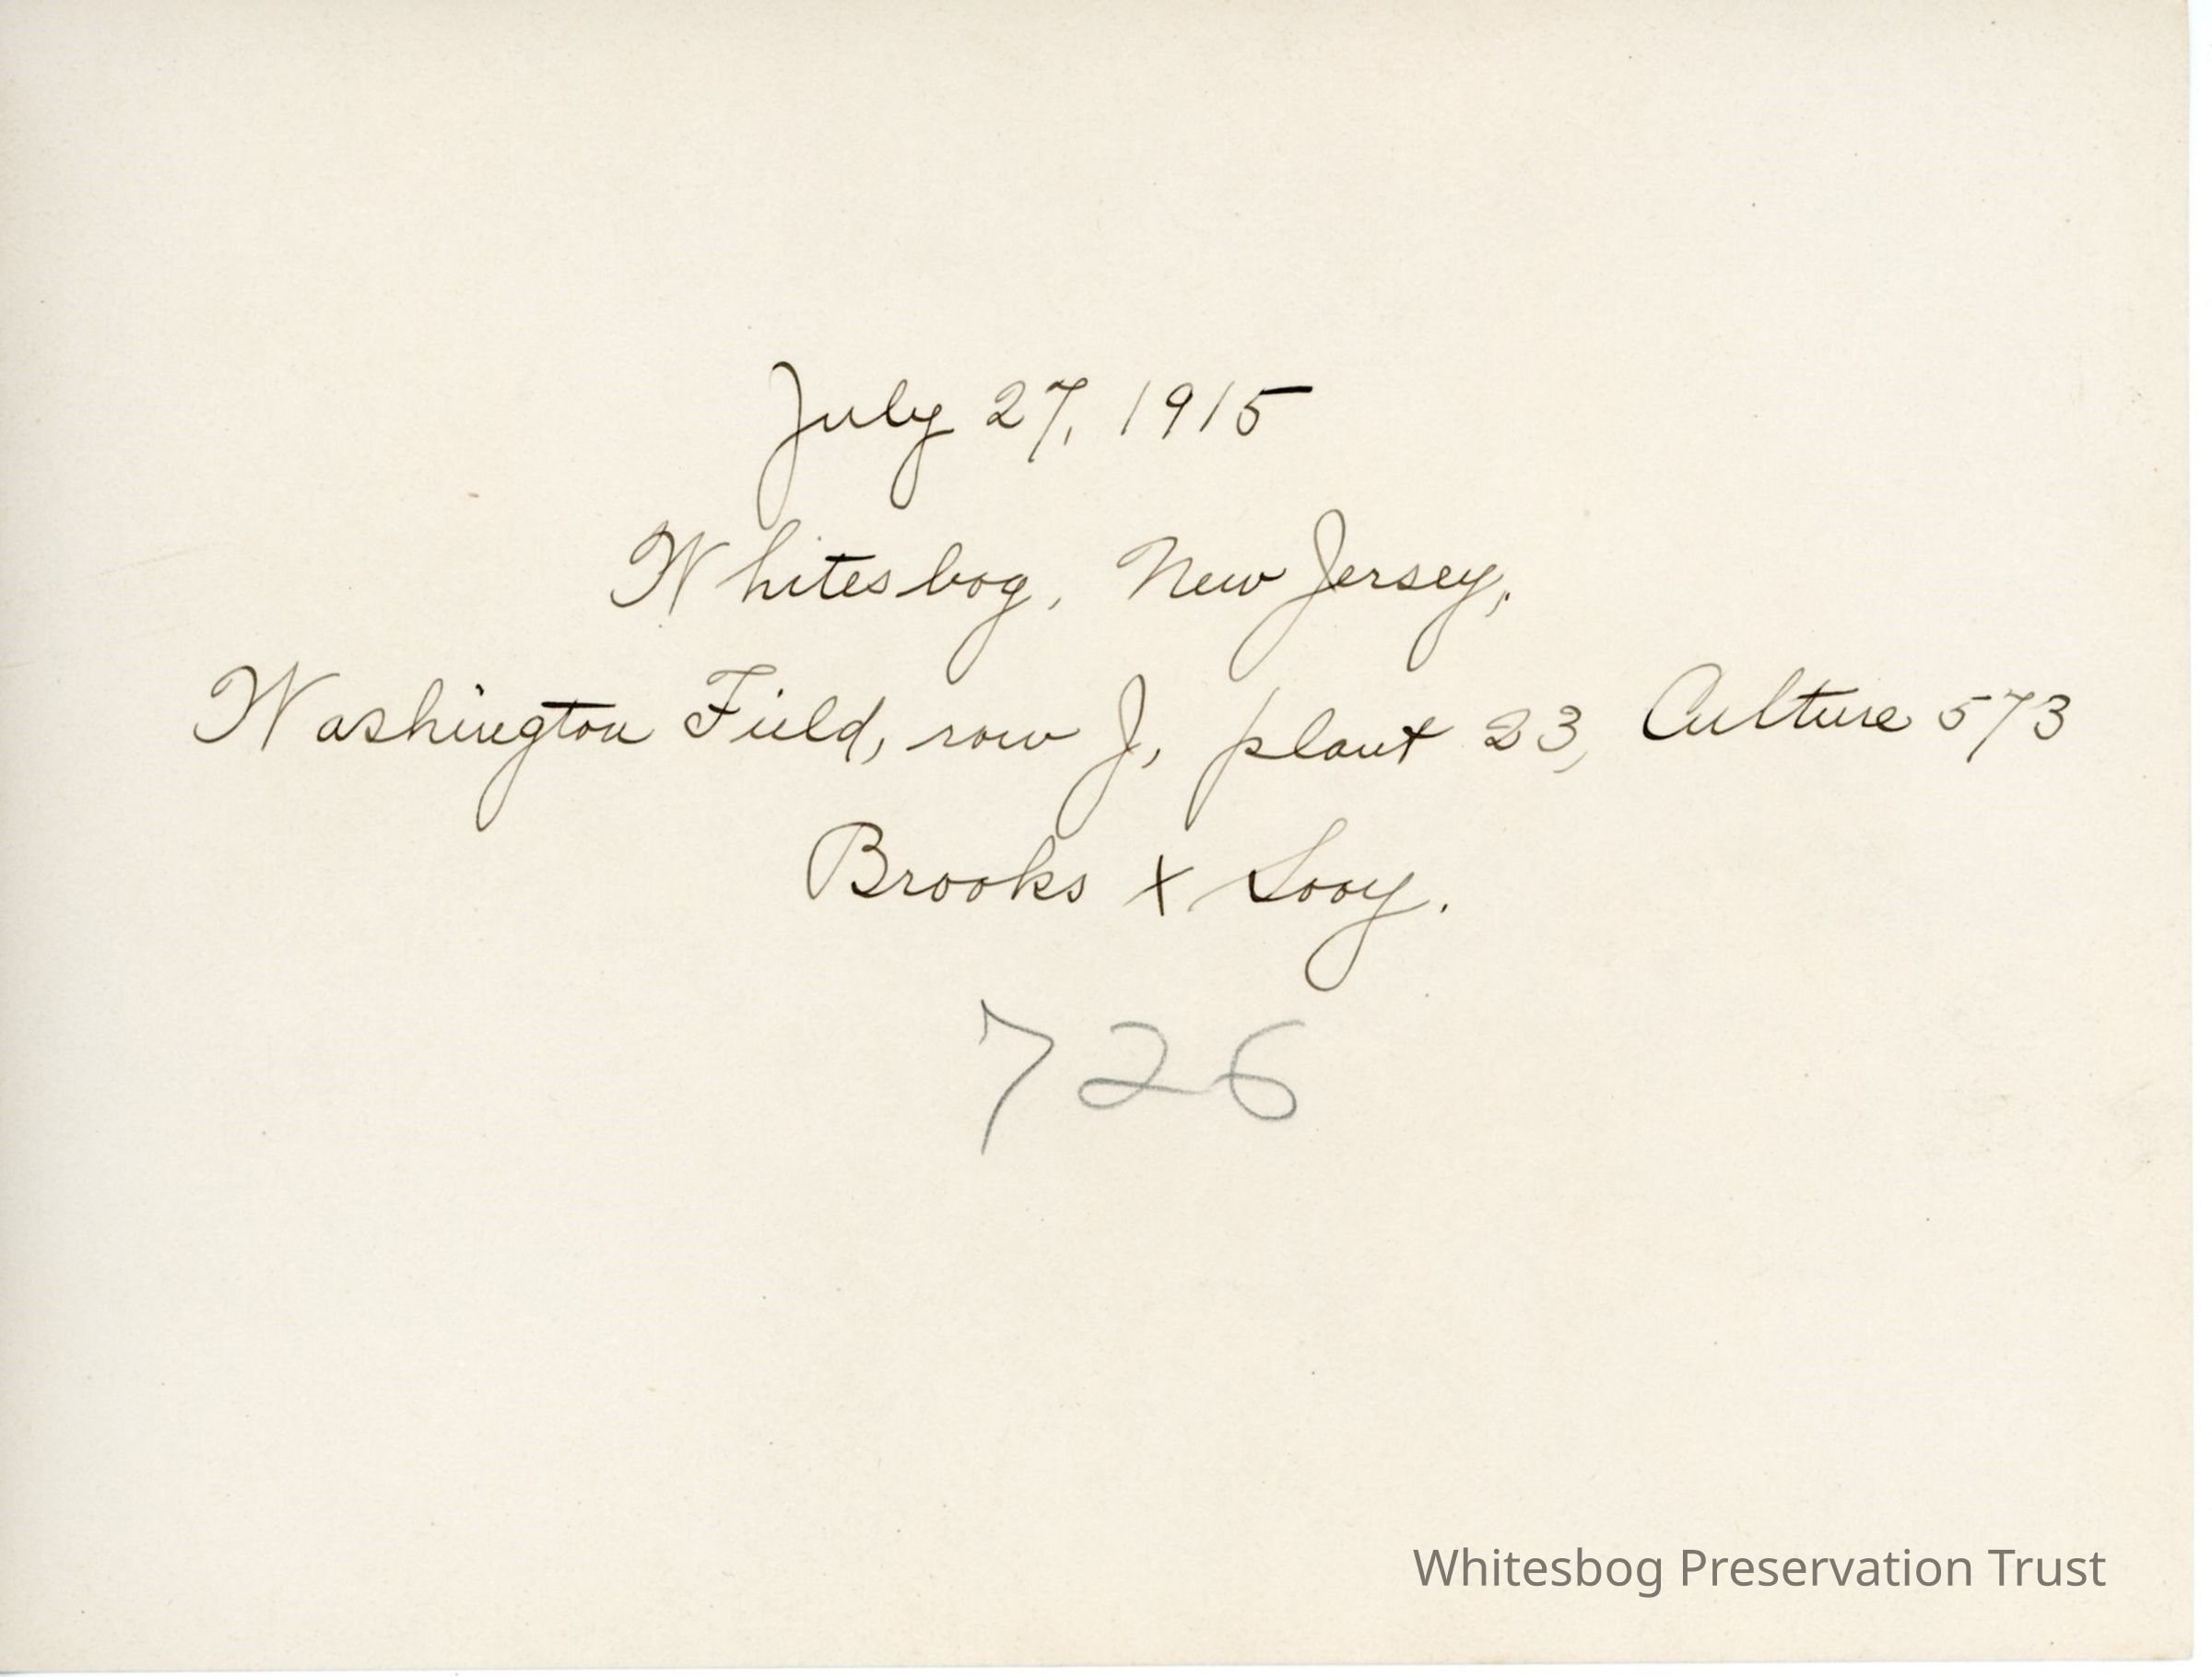 July 27, 1915
Whitesbog, New Jersey,
Washington Field, row J, plant 23, Culture 573
Brooks x Sooy.
726
Whitesbog Preservation Trust